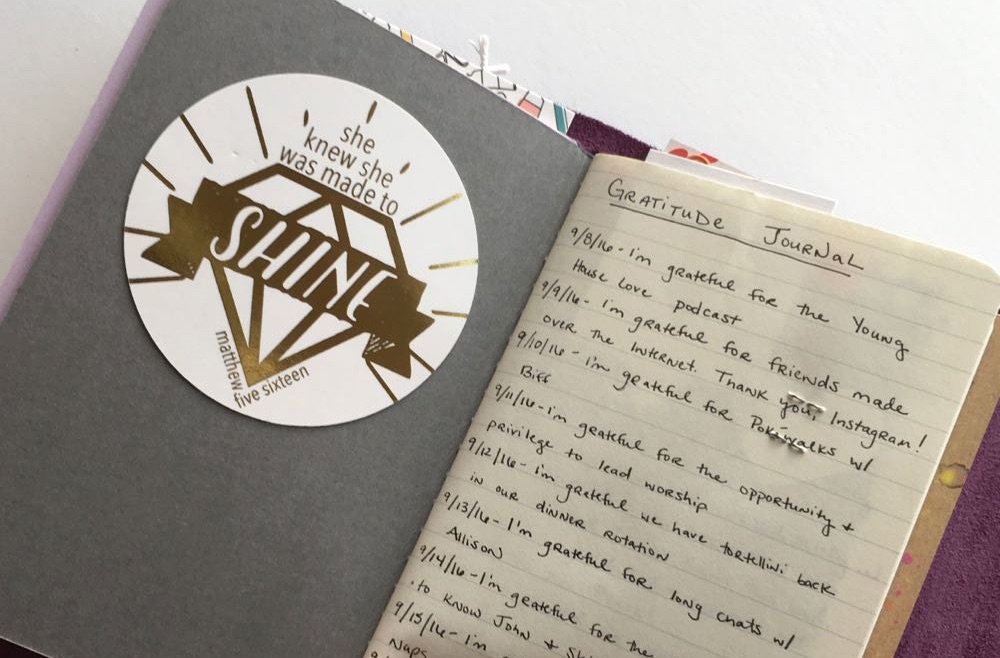 she
knew she
was made to
SHINE
matthew
five sixteen
GRATITUDE JOURNAL
9/8/16 - i'm grateful for the Young
House Love podcast
9/9/16 - I'm grateful for friends made
over the Internet. Thank you, Instagram!
9/10/16 - i'm grateful for Pokéwalks w/
Biff
9/11/16 - i'm grateful for the opportunity +
privilege to lead worship
9/12/16 - i'm grateful we have tortellini back
in our dinner rotation
9/13/16 - I'm grateful for long chats w/
Allison
9/14/16 - I'm grateful for the
to know John +
9/15/16 - i'm
Naps